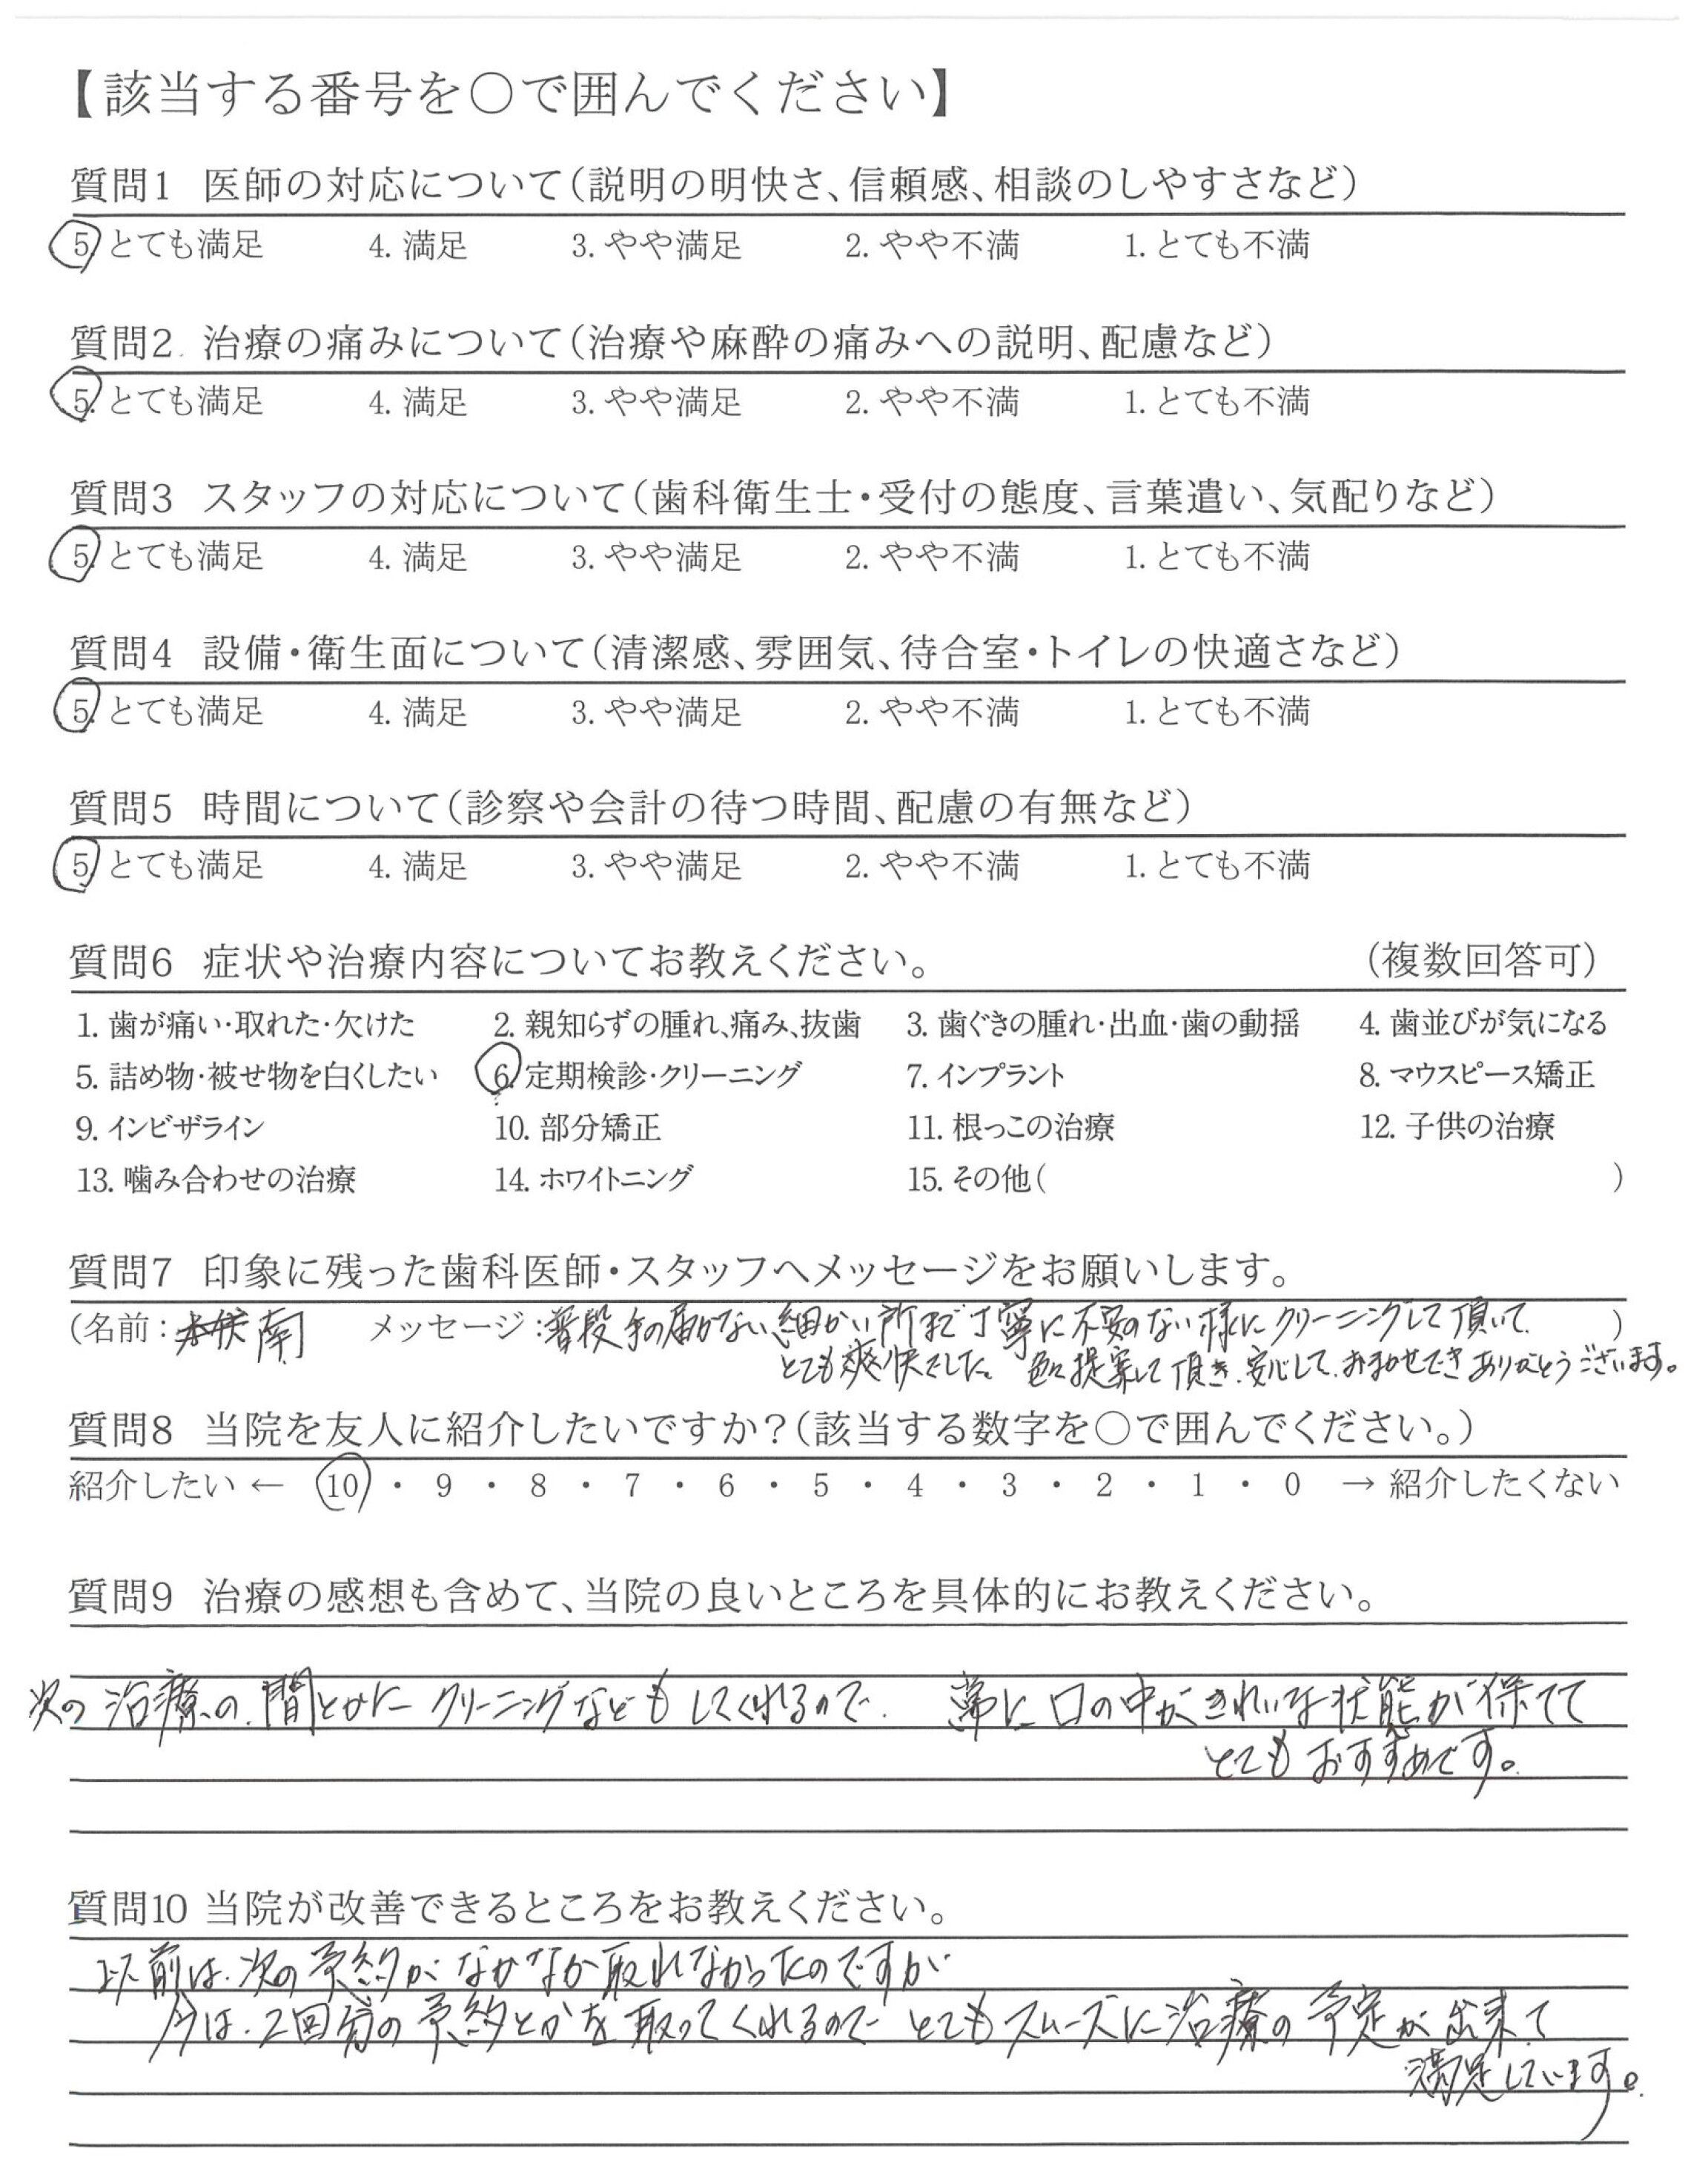 【該当する番号を〇で囲んでください】
質問1 医師の対応について(説明の明快さ、信頼感、相談のしやすさなど)
5. とても満足 4. 満足 3. やや満足 2. やや不満 1. とても不満
質問2 治療の痛みについて(治療や麻酔の痛みへの説明、配慮など)
5. とても満足 4. 満足 3. やや満足 2. やや不満 1. とても不満
質問3 スタッフの対応について(歯科衛生士・受付の態度、言葉遣い、気配りなど)
5. とても満足 4. 満足 3. やや満足 2. やや不満 1. とても不満
質問4 設備・衛生面について(清潔感、雰囲気、待合室・トイレの快適さなど)
5. とても満足 4. 満足 3. やや満足 2. やや不満 1. とても不満
質問5 時間について(診察や会計の待つ時間、配慮の有無など)
5. とても満足 4. 満足 3. やや満足 2. やや不満 1. とても不満
質問6 症状や治療内容についてお教えください。 (複数回答可)
1. 歯が痛い・取れた・欠けた 2. 親知らずの腫れ、痛み、抜歯 3. 歯ぐきの腫れ・出血・歯の動揺 4. 歯並びが気になる
5. 詰め物・被せ物を白くしたい 6. 定期検診・クリーニング 7. インプラント 8. マウスピース矯正
9. インビザライン 10. 部分矯正 11. 根っこの治療 12. 子供の治療
13. 噛み合わせの治療 14. ホワイトニング 15. その他( )
質問7 印象に残った歯科医師・スタッフへメッセージをお願いします。
(名前: 南 メッセージ:普段手の届かない細かい所まで丁寧に不安のない様にクリーニングして頂いて )
とても爽快でした。 色々提案して頂き、安心して、おまかせできありがとうございます。
質問8 当院を友人に紹介したいですか?(該当する数字を〇で囲んでください。)
紹介したい ← 10 ・ 9 ・ 8 ・ 7 ・ 6 ・ 5 ・ 4 ・ 3 ・ 2 ・ 1 ・ 0 → 紹介したくない
質問9 治療の感想も含めて、当院の良いところを具体的にお教えください。
次の治療の間とかにクリーニングなどもしてくれるので、常に口の中がきれいな状態が保てて
とてもおすすめです。
質問10 当院が改善できるところをお教えください。
以前は、次の予約がなかなか取れなかったのですが
今は、2回分の予約とかを取ってくれるのでとてもスムーズに治療の予定が出来て
満足しています。